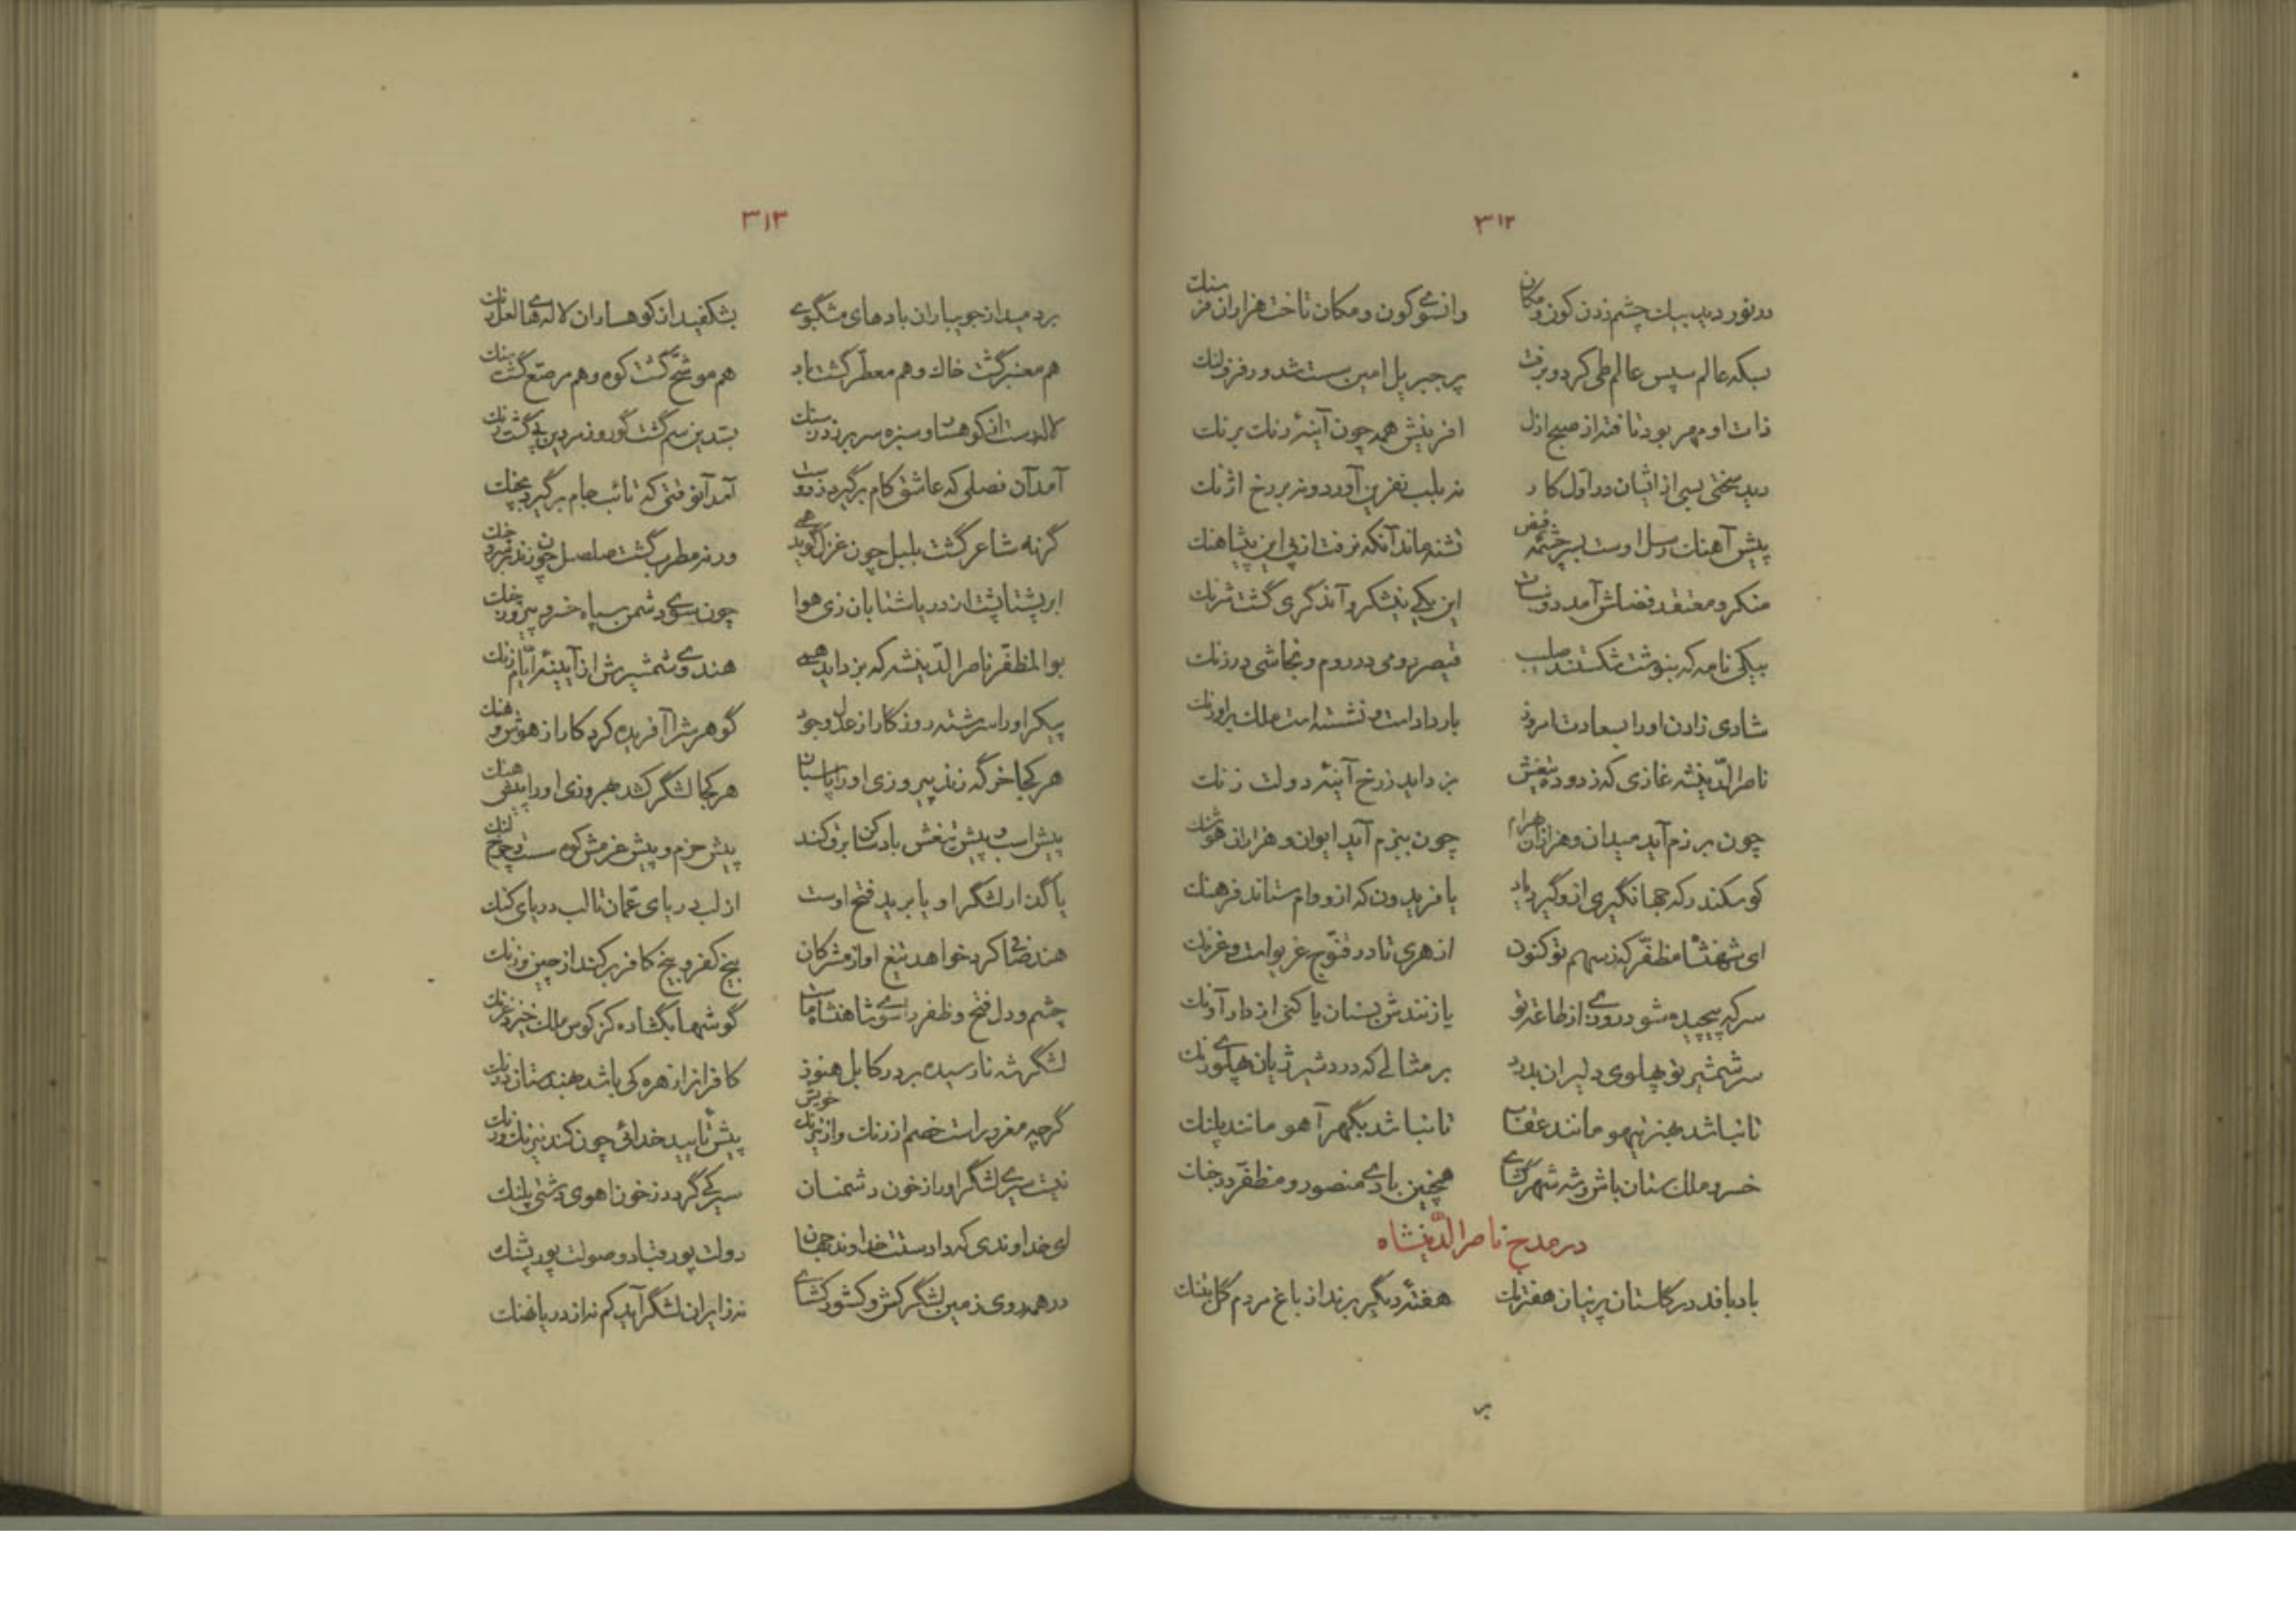 ۳۱۲
در نوردید بیک چشم زدن کون و مکان وانسوی کون و مکان تاخت هزاران فرسنک
بیکه عالم سپس عالم طی کرد و برفت پر جبریل امین سست شد و رفرف لنک
ذات او مهر بود تافته از صبح ازل افرینش همه چون آینهٔ رنک برنک
دید سختی بسی از اینان در اول کار نه بلب نفرین آورد و نه بر رخ اژنک
پیش آهنک رسل اوست بسرچشمه فیض تشنه ماند آنکه نرفت از پی این پیشاهنک
منکر و معتقد فضلش آمد دو نبات این یکی نیشکر و آن دگری گشت شرنک
بیکی نامه که بنوشت شکستند صلیب قیصر رومی در روم و نجاشی در زنک
شادی زادن او را بسعادت امروز بار داد است و نشسته است ملک بر اورنک
ناصرالدینشه غازی که ز دوده تیغش بزداید ز رخ آینهٔ دولت زنک
چون برزم آید میدان و هزاران بهرام چون ببزم آید ایوان و هزاران هوشنک
کو سکندر که جهانگیری ازو گیرد یاد یا فریدون که ازو وام ستاند فرهنک
ای شهنشاه مظفر که ز سهم تو کنون از هری تا در قنوج غریو است و غرنک
سر که پیچیده شود روزی از طاعت تو یا زنندش بسنان یا کنی از دار آونک
سر شمشیر تو پهلوی دلیران بدرد بر مثالی که درد شیر ژیان پهلوی رنک
تا نباشد بهنر تیهو مانند عقاب تا نباشد بگهر آهو مانند پلنک
خسرو ملک ستان باش و شه شهر گشای همچنین بادی منصور و مظفر در جنک
در مدح ناصرالدینشاه
باد بافد در گلستان پرنیان هفترنک هفتهٔ دیگر برند از باغ مردم گل بتنک
بر
۳۱۳
بردمید از جویباران بادهای مشگبوی بشکفید از کوهساران لاله‌های لعل رنک
هم معنبر گشت خاک و هم معطر گشت باد هم موشح گشت کوه و هم مرصع گشت سنک
لاله رست از کوهسار و سبزه سر برزد ز سنک
آمد آن فصلی که عاشق کام برگیرد ز دوست آمد آنوقتی که تائب جام برگیرد بچنک
گرنه شاعر گشت بلبل چون غزل گوید همی ورنه مطرب گشت صلصل چون زند بربرود چنک
ابر پشتاپشت از دریا شتابان زی هوا چون سوی دشمن سپاه خسرو پیروز جنک
بوالمظفر ناصرالدینشه که بزداید همی هندوی شمشیرش از آیینهٔ ایام زنک
پیکر او را سرشته روزگار از عدل و جود گوهرش را آفریده کردکار از هوش و هنک
هر کجا خرگه زند پیروزی او را پاسبان هر کجا لشگر کشد بهروزی او را پیش هنک
پیش اسب و پیش تیغش باد ساکن برق کند پیش حزم و پیش عزمش کوه سست و چرخ لنک
پا گذار لشگر او یا برید فتح اوست از لب دریای عمان تا لب دریای کنک
هند صافی کرد خواهد تیغ او از مشرکان بیخ کفر و بیخ کافر برکند از چین و زنک
چشم و دل فتح و ظفر را سوی شاهنشاه ماست گوشها بگشاده کز کوس ملک خیزد غرنک
لشگر شه نارسیده بر در کابل هنوز کافران را زهره کی باشد بهندستان درنک
گرچه مغرور است خصم از رنک و از نیرنک خویش پیش تأیید خدائی چون کند نیرنک و رنک
نیست سیری لشگر او را ز خون دشمنان سیر کی گردد ز خون آهوی دشتی پلنک
ای خداوندی که دادستت خداوند جهان دولت پور قباد و صولت پور پشنک
در همه روی زمین لشگر کش و کشور گشای نه ز ایران لشگر آید کم نه از دریا نهنک